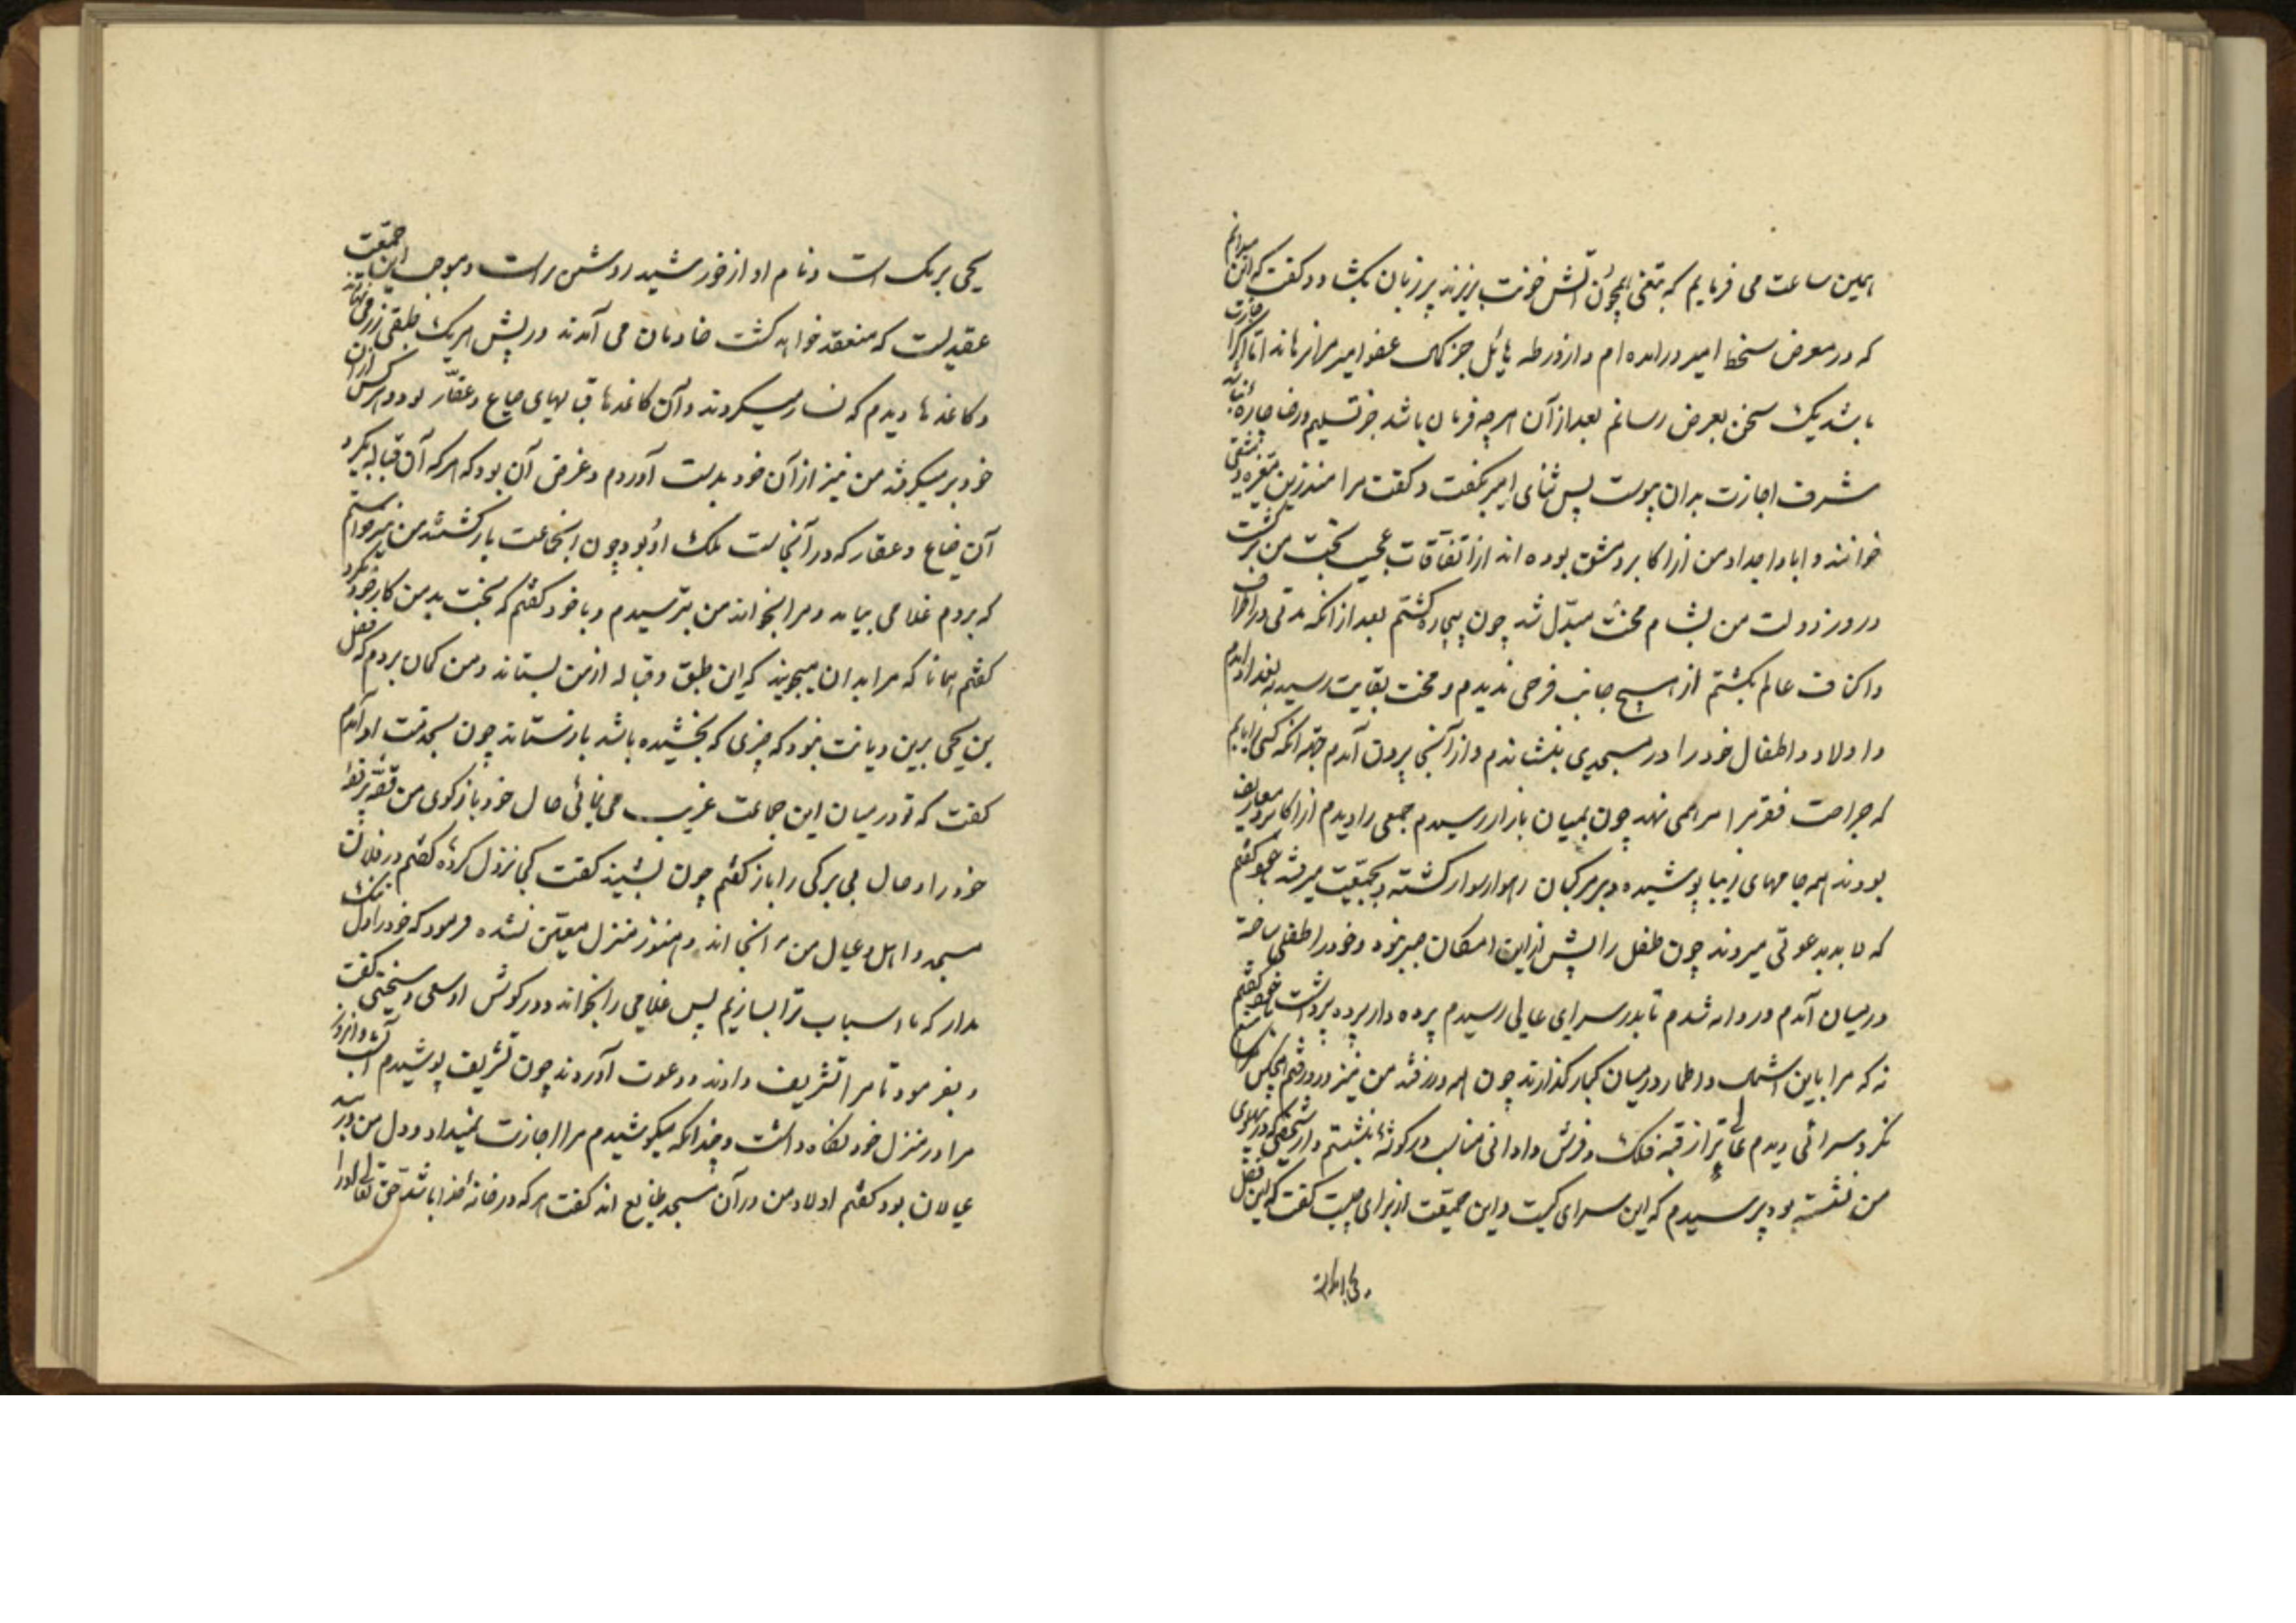 همین ساعت می فرمایم که بتیغی همچون آتش خونت بریزند پیر زبان بکشاد و کفت که این میدانم
که در معرض سخط امیر درامده ام و از ورطه هائل جز کمال عفو امیر مرا نرهاند اما اکر اجازت
باشد یک سخن بعرض رسانم بعد از آن هر چه فرمان باشد جز تسلیم و رضا چاره نباشد
شرف اجازت بدان پیوست پس ثنای امیر بکفت و کفت مرا منذر بن مغیره دمشقی
خوانند و ابا و اجداد من از اکابر دمشق بوده اند از اتفاقات عجیب بخت من برکشت
و روز دولت من بشام محنت مبدّل شد چون بیچاره کشتم بعد از انکه مدتی در اطراف
و اکناف عالم بکشتم از هیچ جانب فرحی ندیدم و محنت بغایت رسید به بغداد آمدم
و اولاد و اطفال خود را در مسجدی بنشاندم و از آنجا بیرون آمدم جهة انکه کسی را یابم
که جراحت فقر مرا مرهمی نهد چون بمیان بازار رسیدم جمعی را دیدم از اکابر و معارف
بودند همه جامهای زیبا پوشیده و بر مرکبان رهوار سوار کشته و بجمعیت میرفتند با خود کفتم
که لابد بدعوتی میروند چون طفل را پیش ازین امکان صبر نبود و خود را طفلی ساخته
در میان آمدم و روانه شدم تا بدر سرای عالی رسیدم پرده دار پرده برداشت با خود کفتم
نه که مرا باین اشمال و اطمار در میان کبار کذارند چون همه در رفتند من نیز در رفتم هیچکس مرا منع
نکرد سرائی دیدم عالی تر از قبه فلک و فرش و اوانی مناسب در کوشهٔ بنشستم و از شخصی که در پهلوی
من نشسته بود پرسیدم که این سرای کیست و این جمعیت از برای چیست کفت که این فضل
یحیی برمک است و نام او از خورشید روشن تر است و موجب این جمعیت
عقدیست که منعقد خواهد کشت خادمان می آمدند و در پیش هر یک طبقی زر می نهادند
و کاغذها دیدم که نثار میکردند و آن کاغذها قبالهای ضیاع و عقار بود و هر کس از آن
خود بر میکرفتند من نیز از آن خود بدست آوردم و غرض آن بود که هر که آن قباله بکیرد
آن ضیاع و عقار که در آنجاست ملک او بود چون انجماعت باز کشتند من نیز خواستم
که بروم غلامی بیامد و مرا بخواند من بترسیدم و با خود کفتم که بخت بد من کار خود بکرد
کفتم همانا که مرا بدان میجویند که این طبق و قباله از من بستانند و من کمان بردم که فضل
بن یحیی برین دیانت بود که چیزی که بخشیده باشد باز نستاند چون بخدمت او آمدم
کفت که تو در میان این جماعت غریب می نمائی حال خود باز کوی من قصّه پر غصّه
خود را و حال بی برکی را باز کفتم چون بشنید کفت کجا نزول کردهٔ کفتم در فلان
مسجد و اهل و عیال من در آنجا اند و هنوز منزل معین نشده فرمود که خود را دل تنک
مدار که ما اسباب ترا بسازیم پس غلامی را بخواند و در کوش او سهل و سختی کفت
و بفرمود تا مرا تشریف دادند و دعوت آوردند چون تشریف پوشیدم آنشب و آنروز
مرا در منزل خود نکاه داشت و چندانکه میکوشیدم مرا اجازت نمیداد و دل من در بند
عیالان بود کفتم اولاد من در آن مسجد ضایع اند کفت هر که در خانهٔ خدا باشد حق تعالی او را